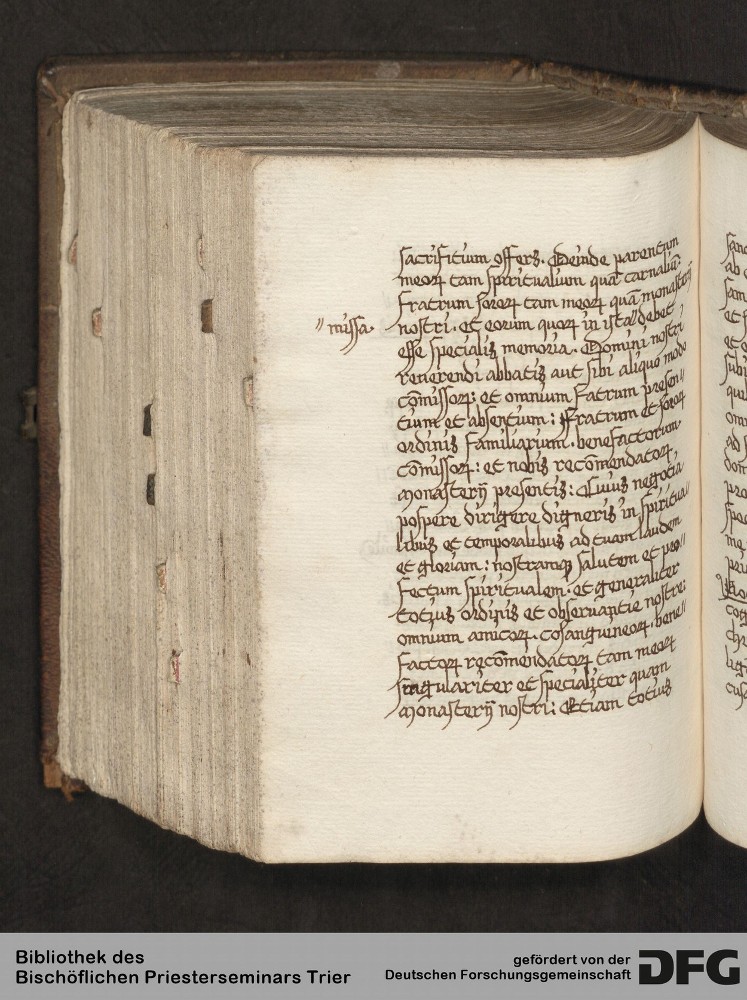 sacrifitium offers. Deinde parentum
meoꝝ tam spiritualium quā carnaliū:
Fratrum soroꝝ tam meoꝝ quā monasterij
nostri. et eorum quoꝝ in ista debet
// missa.
esse specialis memoria. Domini nostri
reuerendi abbatis aut sibi aliquo modo
cōmissoꝝ: et omnium Fatrum presen//
tium et absentium: Fratrum et soroꝝ
ordinis Familiarium. benefactorum
cōmissoꝝ: et nobis recōmendatoꝝ
monasterij presentis: Cuius negotia
pospere dirigere digneris in spiritua//
libus et temporalibus ad tuam laudem
et gloriam: nostramqꝫ salutem et pro//
fectum spiritualem. et generaliter
totius ordinis et obseruantie nostre:
omnium amicoꝝ. cōsanguineoꝝ. bene//
factoꝝ recōmendatoꝝ tam meoꝝ
singulariter et specialiter quam
monasterij nostri: Etiam totius
Bibliothek des
Bischöflichen Priesterseminars Trier
gefördert von der
Deutschen Forschungsgemeinschaft
DFG